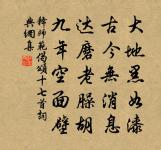 大地黑如漆
古今無消息
達磨老臊胡
九年空面壁
釋師範偈頌十七首詞
典網集